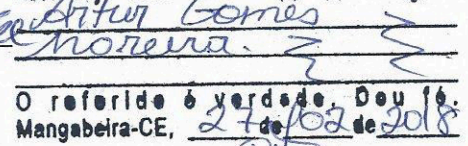 Artur Gomes
Moreira.
O referido é verdade. Dou fé.
Mangabeira-CE, 27 de 02 de 2018